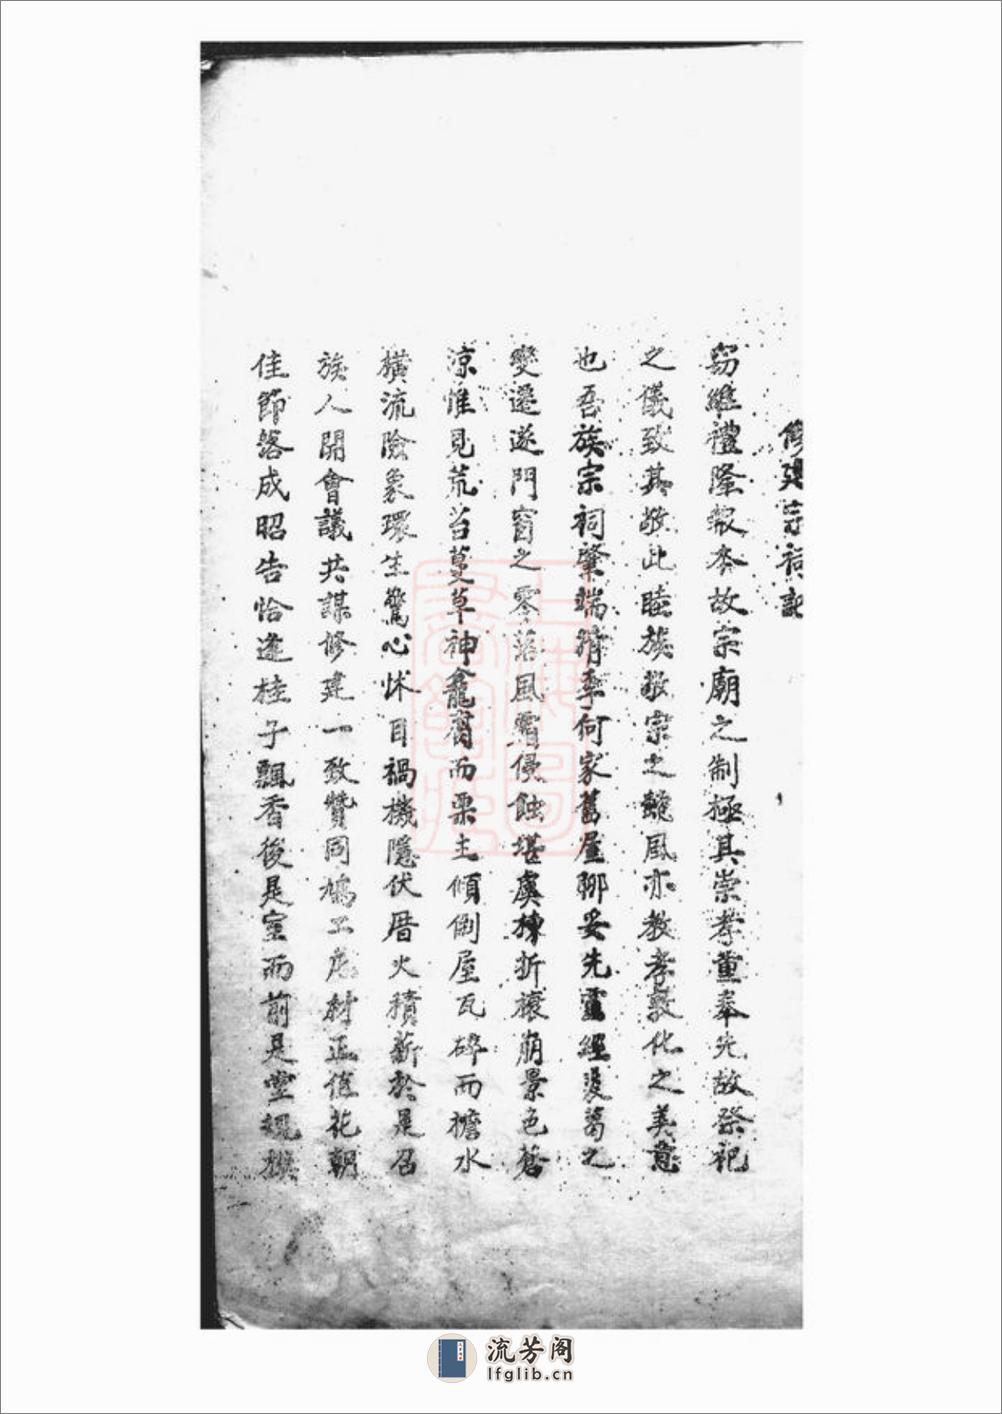 修建宗祠記
窃維禮隆報本故宗廟之制極其崇孝重奉先故祭祀
之儀致其敬此睦族敬宗之懿風亦教孝敦化之美意
也吾族宗祠肇端清季何家舊屋聊妥先靈經裘葛之
變遷遂門窗之零落風霜侵蝕堪虞棟折榱崩景色蒼
凉惟見荒苔蔓草神龕腐而栗主傾倒屋瓦碎而檐水
橫流險象環生驚心怵目禍機隱伏厝火積薪於是召
族人開會議共謀修建一致贊同鳩工庀材正值花朝
佳節落成昭告恰逢桂子飄香後是室而前是堂規模
上海圖書館藏
流芳阁
lfglib.cn